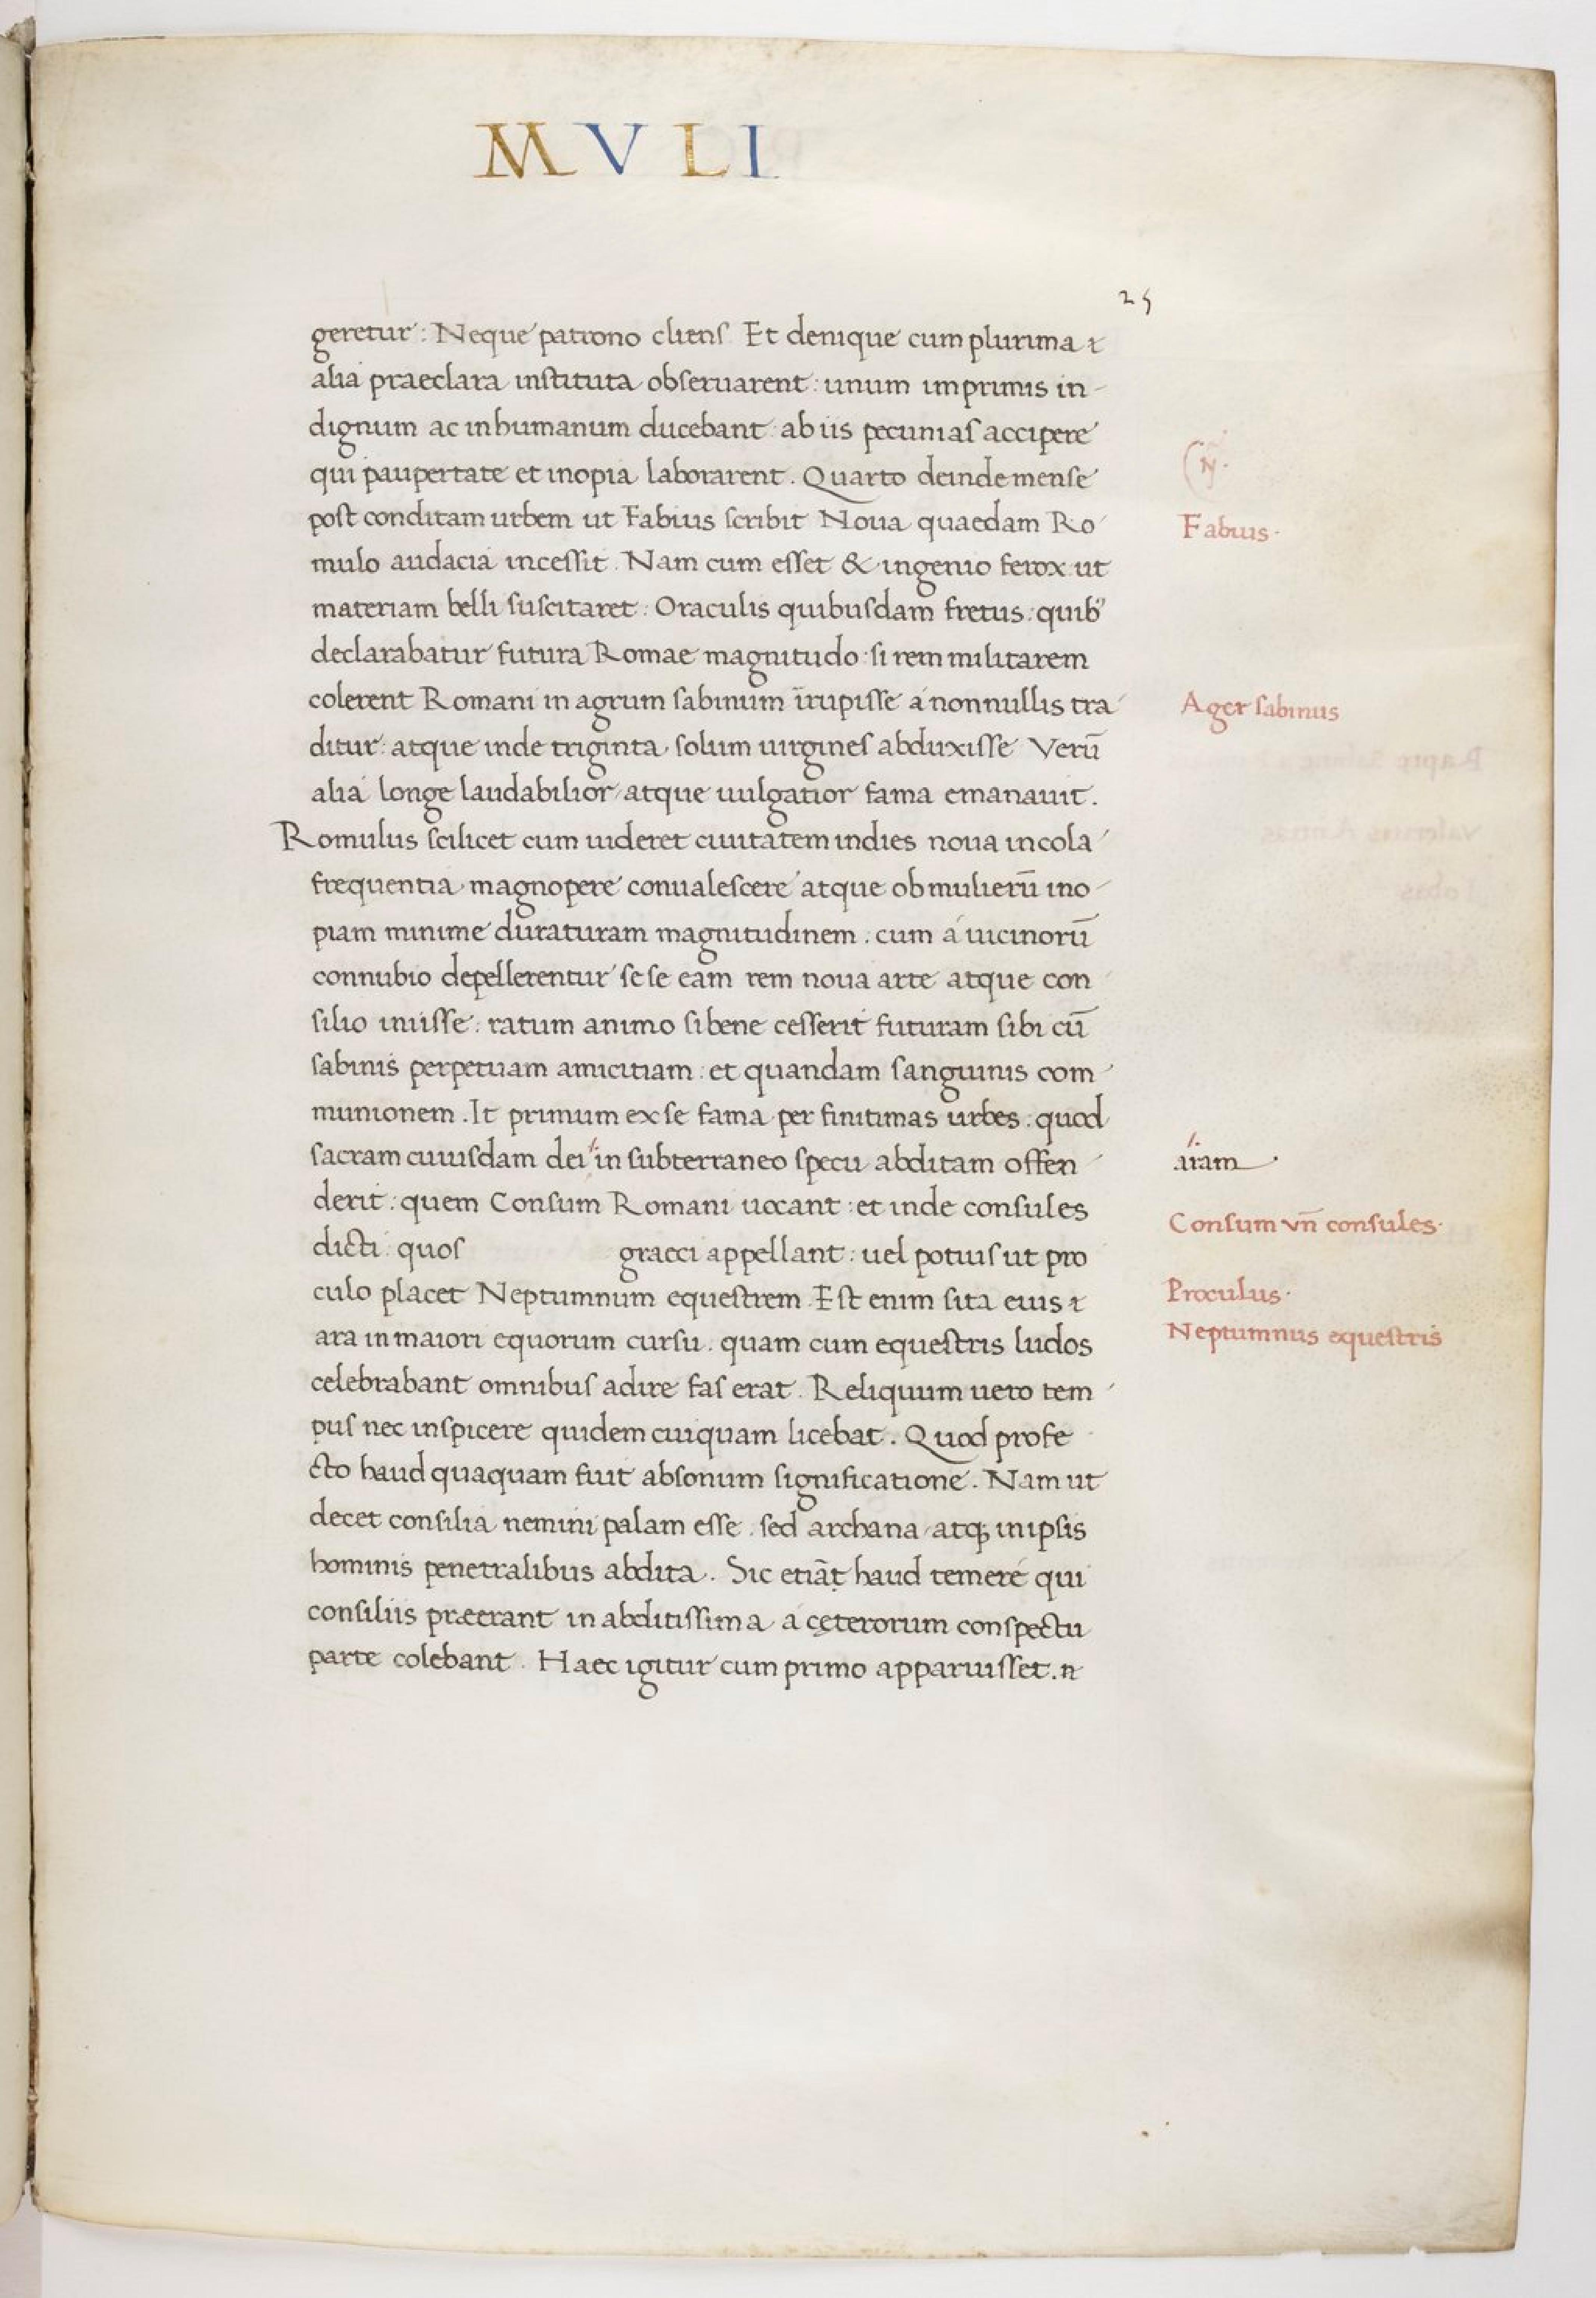 MVLI
25
geretur: Neque patrono cliens Et denique cum plurima &
alia praeclara instituta obseruarent: unum imprimis in-
dignum ac inhumanum ducebant: ab iis pecunias accipere
qui paupertate et inopia laborarent. Quarto deinde mense
post conditam urbem ut Fabius scribit Noua quaedam Ro
Fabius.
mulo audacia incessit. Nam cum esset & ingenio ferox: ut
materiam belli suscitaret: Oraculis quibusdam fretus: quib'
declarabatur futura Romae magnitudo: si rem militarem
colerent Romani in agrum sabinum īrupisse a nonnullis tra
Ager sabinus
ditur: atque inde triginta solum uirgines abduxisse Verū
alia longe laudabilior atque uulgatior fama emanauit.
Romulus scilicet cum uideret ciuitatem indies noua incola
frequentia magnopere conualescere atque ob mulierū ino-
piam minime duraturam magnitudinem: cum a uicinorū
connubio depellerentur sese eam rem noua arte atque con
silio iniisse: ratum animo si bene cesserit futuram sibi cū
sabinis perpetuam amicitiam: et quandam sanguinis com
munionem. It primum ex se fama per finitimas urbes: quod
sacram cuiusdam dei in subterraneo specu abditam offen
aram
derit: quem Consum Romani uocant: et inde consules
Consum vn̄ consules.
dicti: quos graeci appellant: uel potius ut pro
culo placet Neptumnum equestrem. Est enim sita eius &
Proculus.
ara in maiori equorum cursu. quam cum equestris ludos
Neptumnus equestris
celebrabant omnibus adire fas erat. Reliquum uero tem
pus nec inspicere quidem cuiquam licebat. Quod profe
cto haud quaquam fuit absonum significatione. Nam ut
decet consilia nemini palam esse: sed archana atq; in ipsis
hominis penetralibus abdita. Sic etiā haud temere qui
consiliis præerant in abditissima a cęterorum conspectu
parte colebant. Haec igitur cum primo apparuisset. n